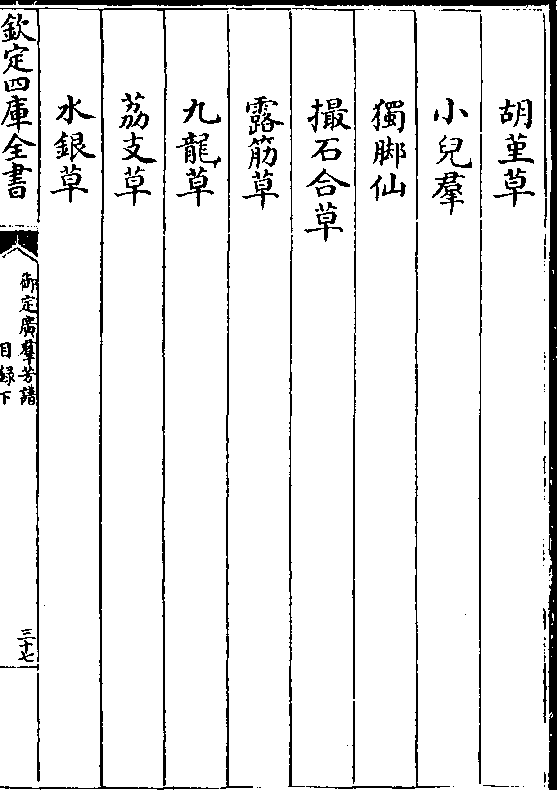 胡堇草
小兒羣
獨脚仙
撮石合草
露筋草
九龍草
荔支草
水銀草
欽定四庫全書
御定廣羣芳譜
目録下
三十七